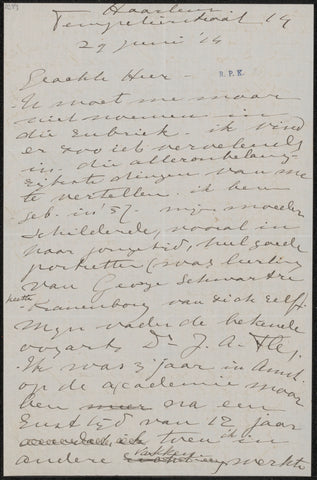 Haarlem
Tempelierstraat 14
29 juni '14
R.P.K.
Geachte Heer -
U moet me maar
niet noemen in
die rubriek. ik vind
er zoo iets vervelends
in, die alleronbelang-
rijkste dingen van me
te vertellen. ik ben
geb. in '57. mijn moeder
schilderde, vooral in
haar jonge tijd, heel goede
portretten (was leerling
van George Schwartze
Kranenborg van zich zelf.
Mijn vader de bekende
oogarts Dr J. A.
Ik was 3 jaar in Amst.
op de academie maar
ben na een
rust tijd van 12 jaar
toen ik in
andere vakken werkte